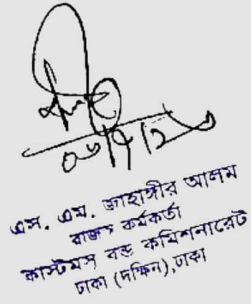 এস. এম. জাহাঙ্গীর আলম
রাজস্ব কর্মকর্তা
কাস্টমস বন্ড কমিশনারেট
ঢাকা (দক্ষিন),ঢাকা